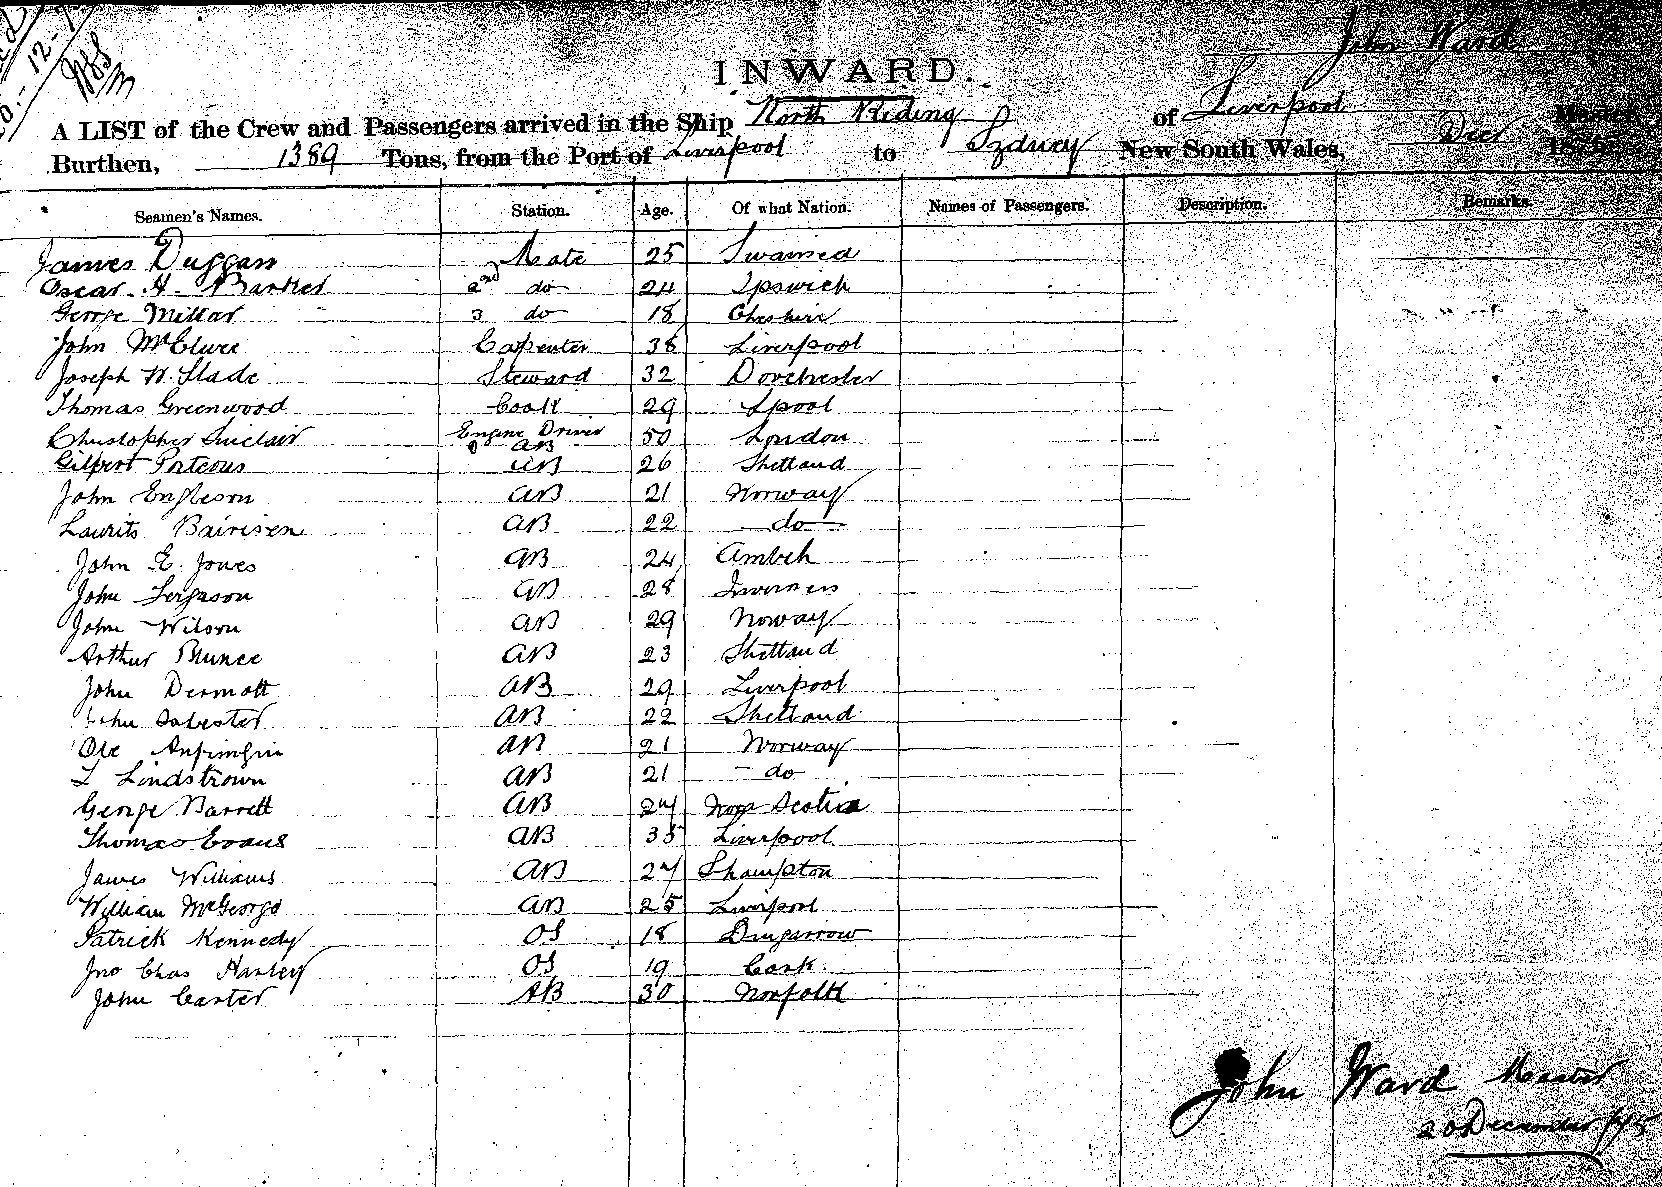 John Ward
INWARD.
A LIST of the Crew and Passengers arrived in the Ship North Riding of Liverpool Master,
Burthen, 1389 Tons, from the Port of Liverpool to Sydney New South Wales, Decr 187
Seamen's Names. Station. Age. Of what Nation. Names of Passengers. Description. Remarks.
James Duggan Mate 25 Swansea
Oscar A. Barker 2nd do 24 Ipswich
George Millar 3 do 18 Cheshire
John McClure Carpenter 38 Liverpool
Joseph W. Slade Steward 32 Dorchester
Thomas Greenwood Cook 29 Lpool
Christopher Sinclair Engine Driver & AB 50 London
Gilpert Porteous AB 26 Shetland
John Engleson AB 21 Norway
Laurits AB 22 do
John E. Jones AB 24 Amlwch
John Ferguson AB 28 Inverness
John Wilson AB 29 Noway
Arthur Bunce AB 23 Shetland
John Dermott AB 29 Liverpool
John Isbester AB 22 Shetland
Ole AB 21 Norway
L Lindstrown AB 21 do
George Barrett AB 24 Nova Scotia
Thomas Evans AB 35 Liverpool
James Williams AB 24 Shampton
William McGeorge AB 25 Liverpool
Patrick Kennedy OS 18 Dungarrow
Jno Chas Hanley OS 19 Cork
John Carter AB 30 Norfolk
John Ward Master
20 December /75